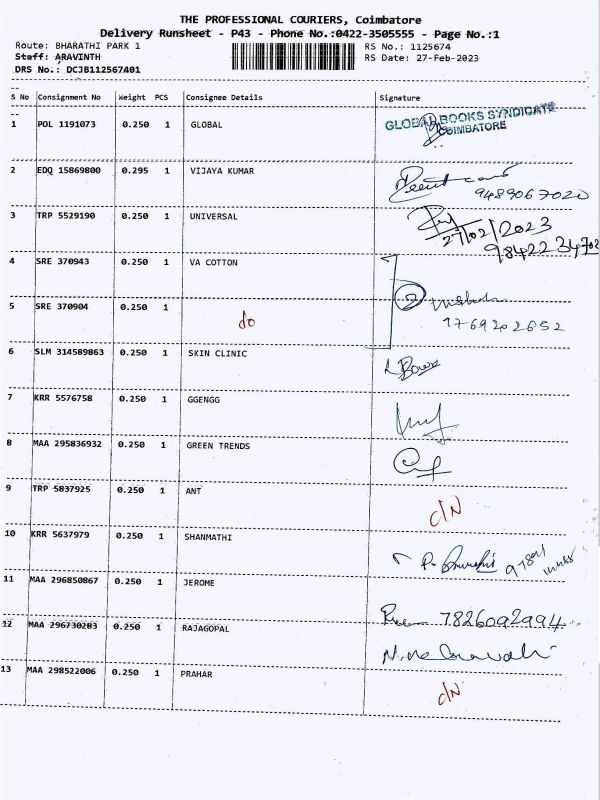 THE PROFESSIONAL COURIERS, Coimbatore
Delivery Runsheet - P43 - Phone No.:0422-3505555 - Page No.:1
Route: BHARATHI PARK 1 RS No.: 1125674
Staff: ARAVINTH RS Date: 27-Feb-2023
DRS No.: DCJB112567401
S No Consignment No Weight PCS Consignee Details Signature
1 POL 1191073 0.250 1 GLOBAL GLOBAL BOOKS SYNDICATE
COIMBATORE
2 EDQ 15869800 0.295 1 VIJAYA KUMAR
9489067020
3 TRP 5529190 0.250 1 UNIVERSAL
27/02/2023
98422 34702
4 SRE 370943 0.250 1 VA COTTON
5 SRE 370904 0.250 1 do
9769202652
6 SLM 314589863 0.250 1 SKIN CLINIC
7 KRR 5576758 0.250 1 GGENGG
8 MAA 295836932 0.250 1 GREEN TRENDS
9 TRP 5837925 0.250 1 ANT C/N
10 KRR 5637979 0.250 1 SHANMATHI
11 MAA 296850867 0.250 1 JEROME
7826092994
12 MAA 296730283 0.250 1 RAJAGOPAL
13 MAA 298522006 0.250 1 PRAHAR C/N